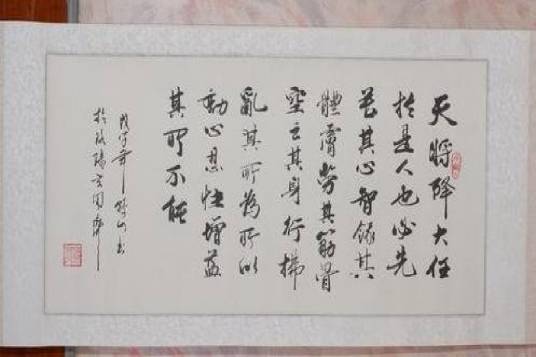 天將降大任
於是人也必先
苦其心智餓其
體膚勞其筋骨
空乏其身行拂
亂其所為所以
動心忍性增益
其所不能